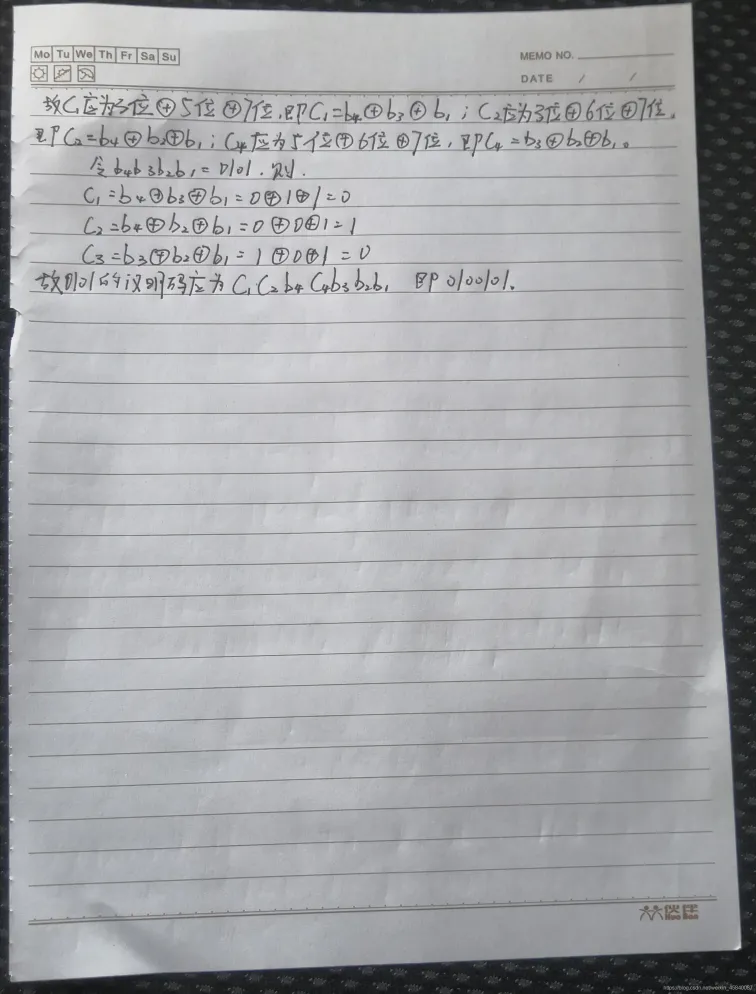 Mo Tu We Th Fr Sa Su
MEMO NO.
DATE / /
故C₁应为3位⊕5位⊕7位,即C₁=b₄⊕b₃⊕b₁;C₂应为3位⊕6位⊕7位,
即C₂=b₄⊕b₂⊕b₁;C₄应为5位⊕6位⊕7位,即C₄=b₃⊕b₂⊕b₁。
令b₄b₃b₂b₁=0101.则.
C₁=b₄⊕b₃⊕b₁=0⊕1⊕1=0
C₂=b₄⊕b₂⊕b₁=0⊕0⊕1=1
C₃=b₃⊕b₂⊕b₁=1⊕0⊕1=0
故0101的汉明码应为C₁C₂b₄C₄b₃b₂b₁ 即0100101.
伙伴
Huo Ban